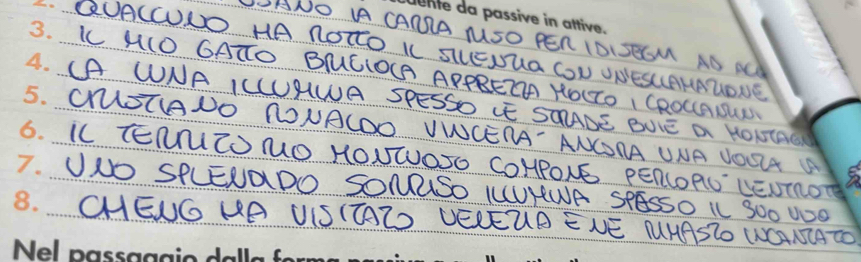 da passive in attive.
2. USANO LA CARTA PER I DISEGNI AD
3. QUALCUNO HA ROTTO IL SILENZIO CON UN'ESCLAMAZIONE
4. IL MIO GATTO BRICIOLA APPREZZA MOLTO I CROCCANTINI
5. LA LUNA ILLUMINA SPESSO LE STRADE BUIE DI MONTAGNA
6. CRISTIANO RONALDO VINCERA' ANCORA UNA VOLTA LA
7. IL TERRITORIO MONTUOSO COMPONE PERLOPIU' LENTROTE
8. UNO SPLENDIDO SORRISO ILLUMINA SPESSO IL SUO VISO
CHEUNG HA VISITATO VENEZIA E NE RIMASTO INCANTATO
Nel passaggio dalla forma